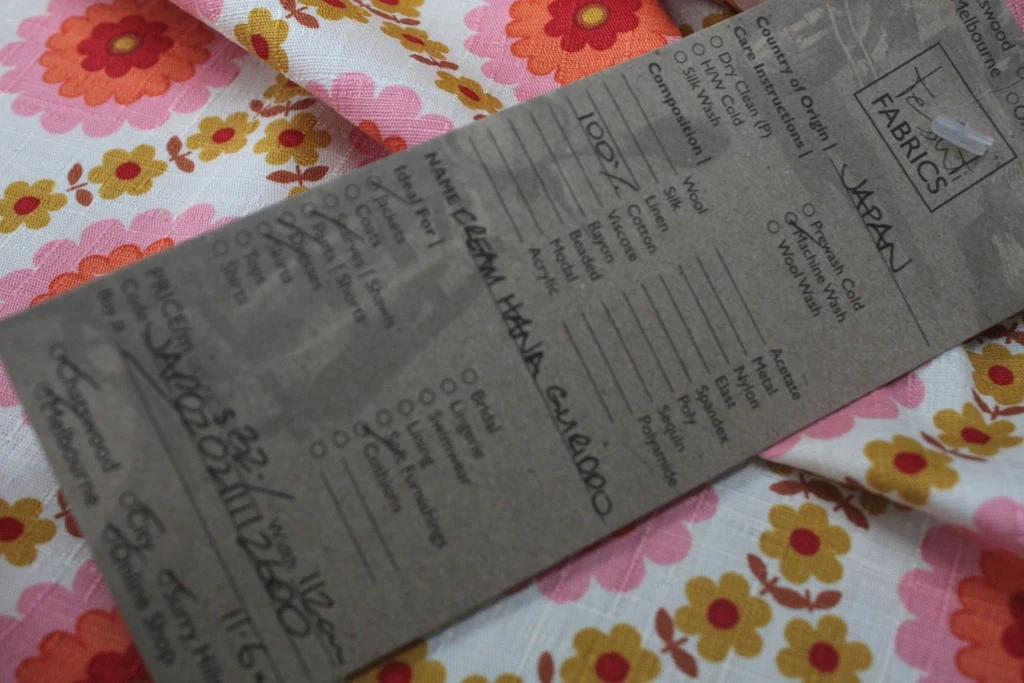 Tessuti
FABRICS
Chatswood
Melbourne
Country of Origin | JAPAN
Care Instructions |
Dry Clean (P)
H/W Cold
Silk Wash
Prewash Cold
Machine Wash
Wool Wash
Composition |
Wool
Silk
Linen
100% Cotton
Viscose
Rayon
Beaded
Modal
Acrylic
Acetate
Metal
Nylon
Elast
Spandex
Poly
Sequin
Polyamide
NAME CREAM HANA GURIDDO
Ideal For |
Jackets
Coats
Pants | Shorts
Dresses
Skirts
Tops
Shirts
Bridal
Lingerie
Swimwear
Lining
Soft Furnishings
Cushions
PRICE/m $32.- WIDE 112cm
Code
Buy it
Chatswood
Melbourne
City
Surry Hills
Online Shop
11.6